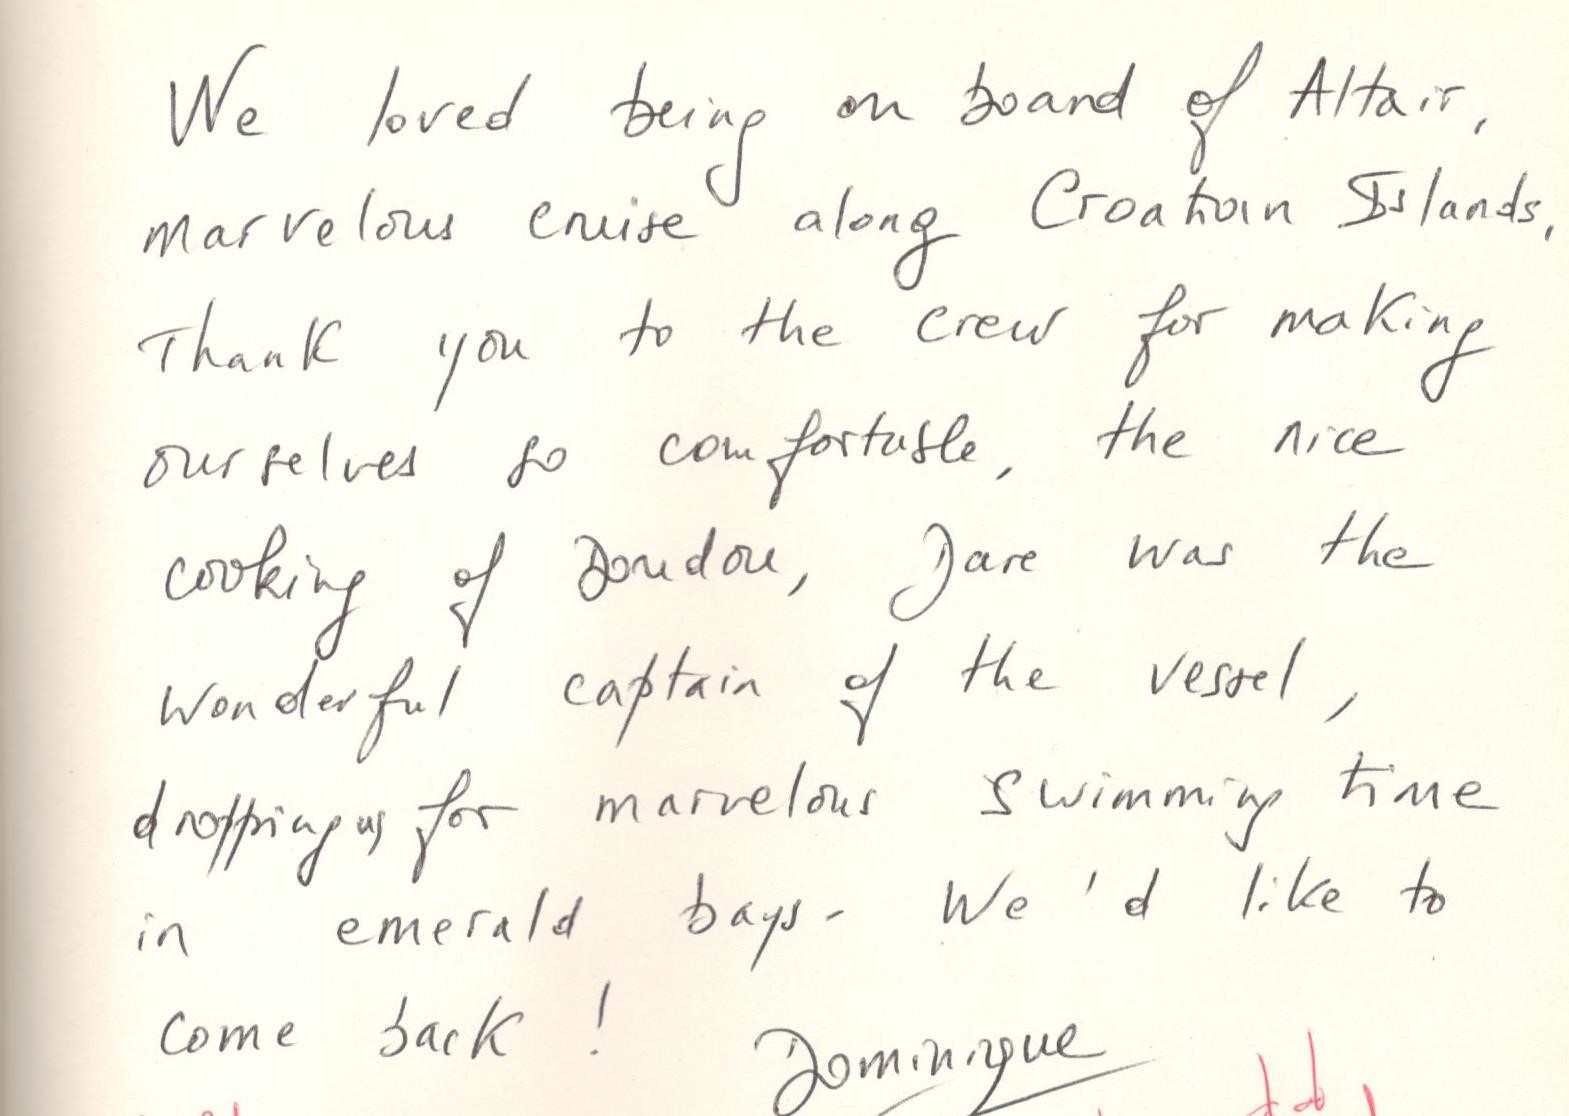 We loved being on board of Altair,
marvelous cruise along Croatian Islands,
Thank you to the crew for making
ourselves so comfortable, the nice
cooking of Doudou, Jare was the
wonderful captain of the vessel,
dropping us for marvelous swimming time
in emerald bays. We'd like to
come back !
Dominique